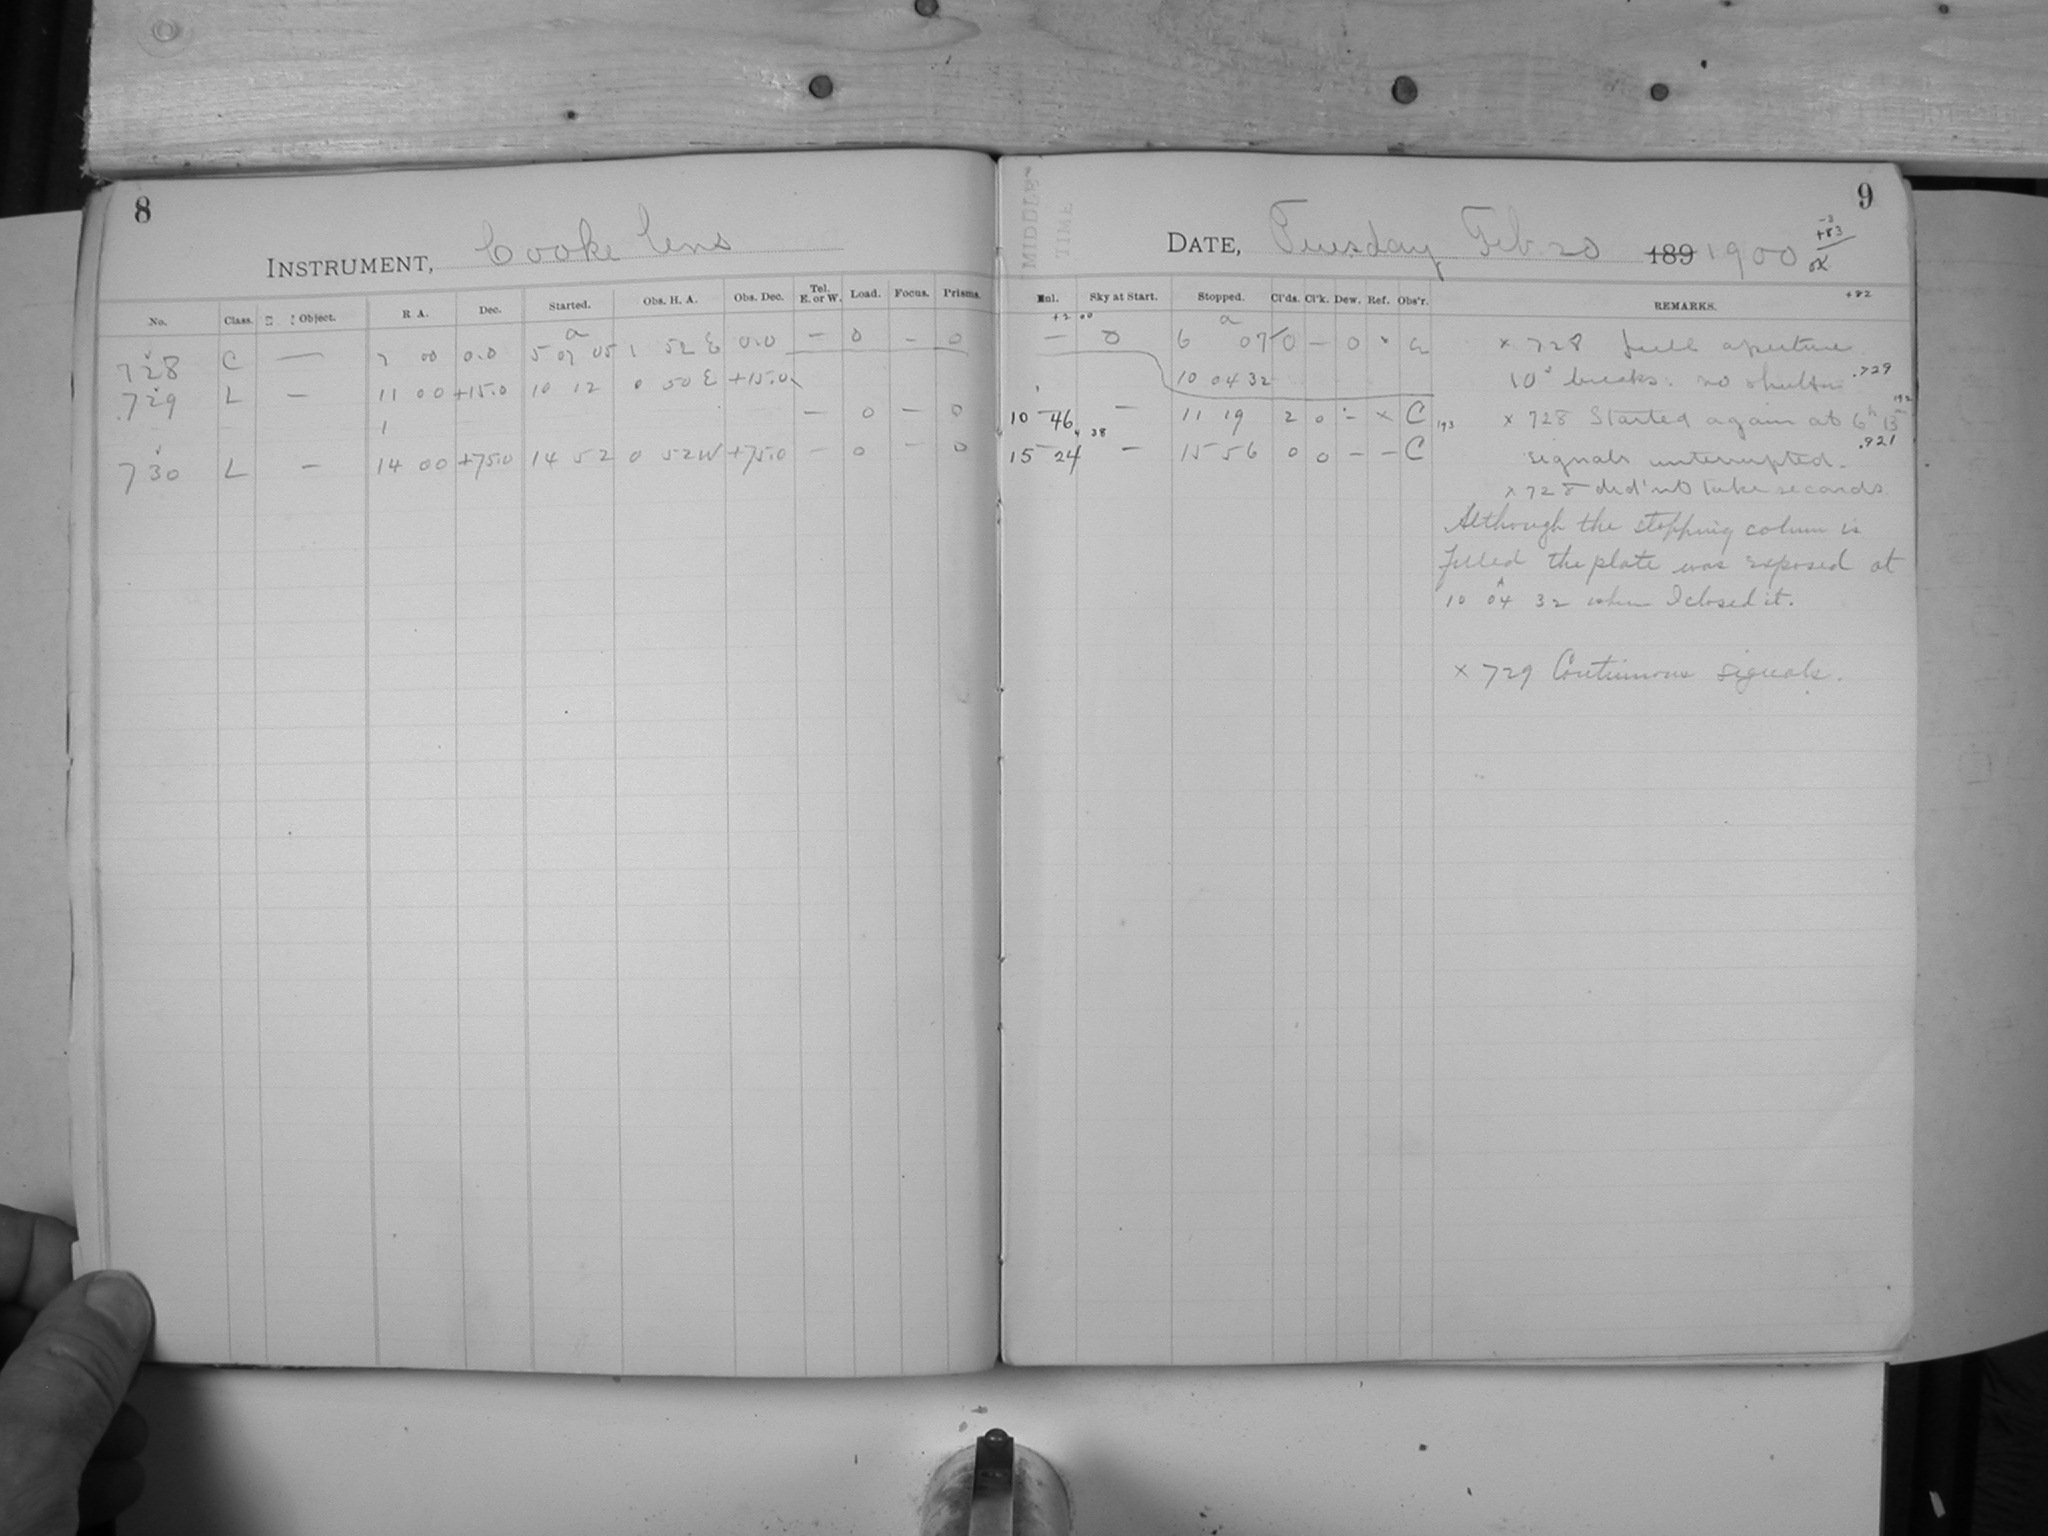 8
INSTRUMENT, Cooke lens
No. Class. Object. R. A. Dec. Started. Obs. H. A. Obs. Dec. Tel. E. or W. Load. Focus. Prisms.
a
728 C — 7 00 0.0 5 07 05 1 52 E 0.0 — 0 — 0
729 L — 11 00 +15.0 10 12 0 50 E +15.0
1 — 0 — 0
730 L — 14 00 +75.0 14 52 0 52 W +75.0 — 0 — 0
9
MIDDLE
TIME
DATE, Tuesday Feb. 20 189 1900
-3
+83
Sky at Start. Stopped. Cl'ds. Cl'k. Dew. Ref. Obs'r. REMARKS.
+82
+2 00
a
— 0 6 07 0 — 0 × a
10 04 32
10 46 — 11 19 2 0 – × C
38
15 24 — 15 56 0 0 – – C
× 728 full aperture
10s breaks. no shutter .729
192
193
× 728 Started again at 6h 13m
.921
signals interrupted.
× 728 did'nt take seconds
Although the stopping column is
filled the plate was exposed at
10 04 32 when I closed it.
× 729 Continuous signals.